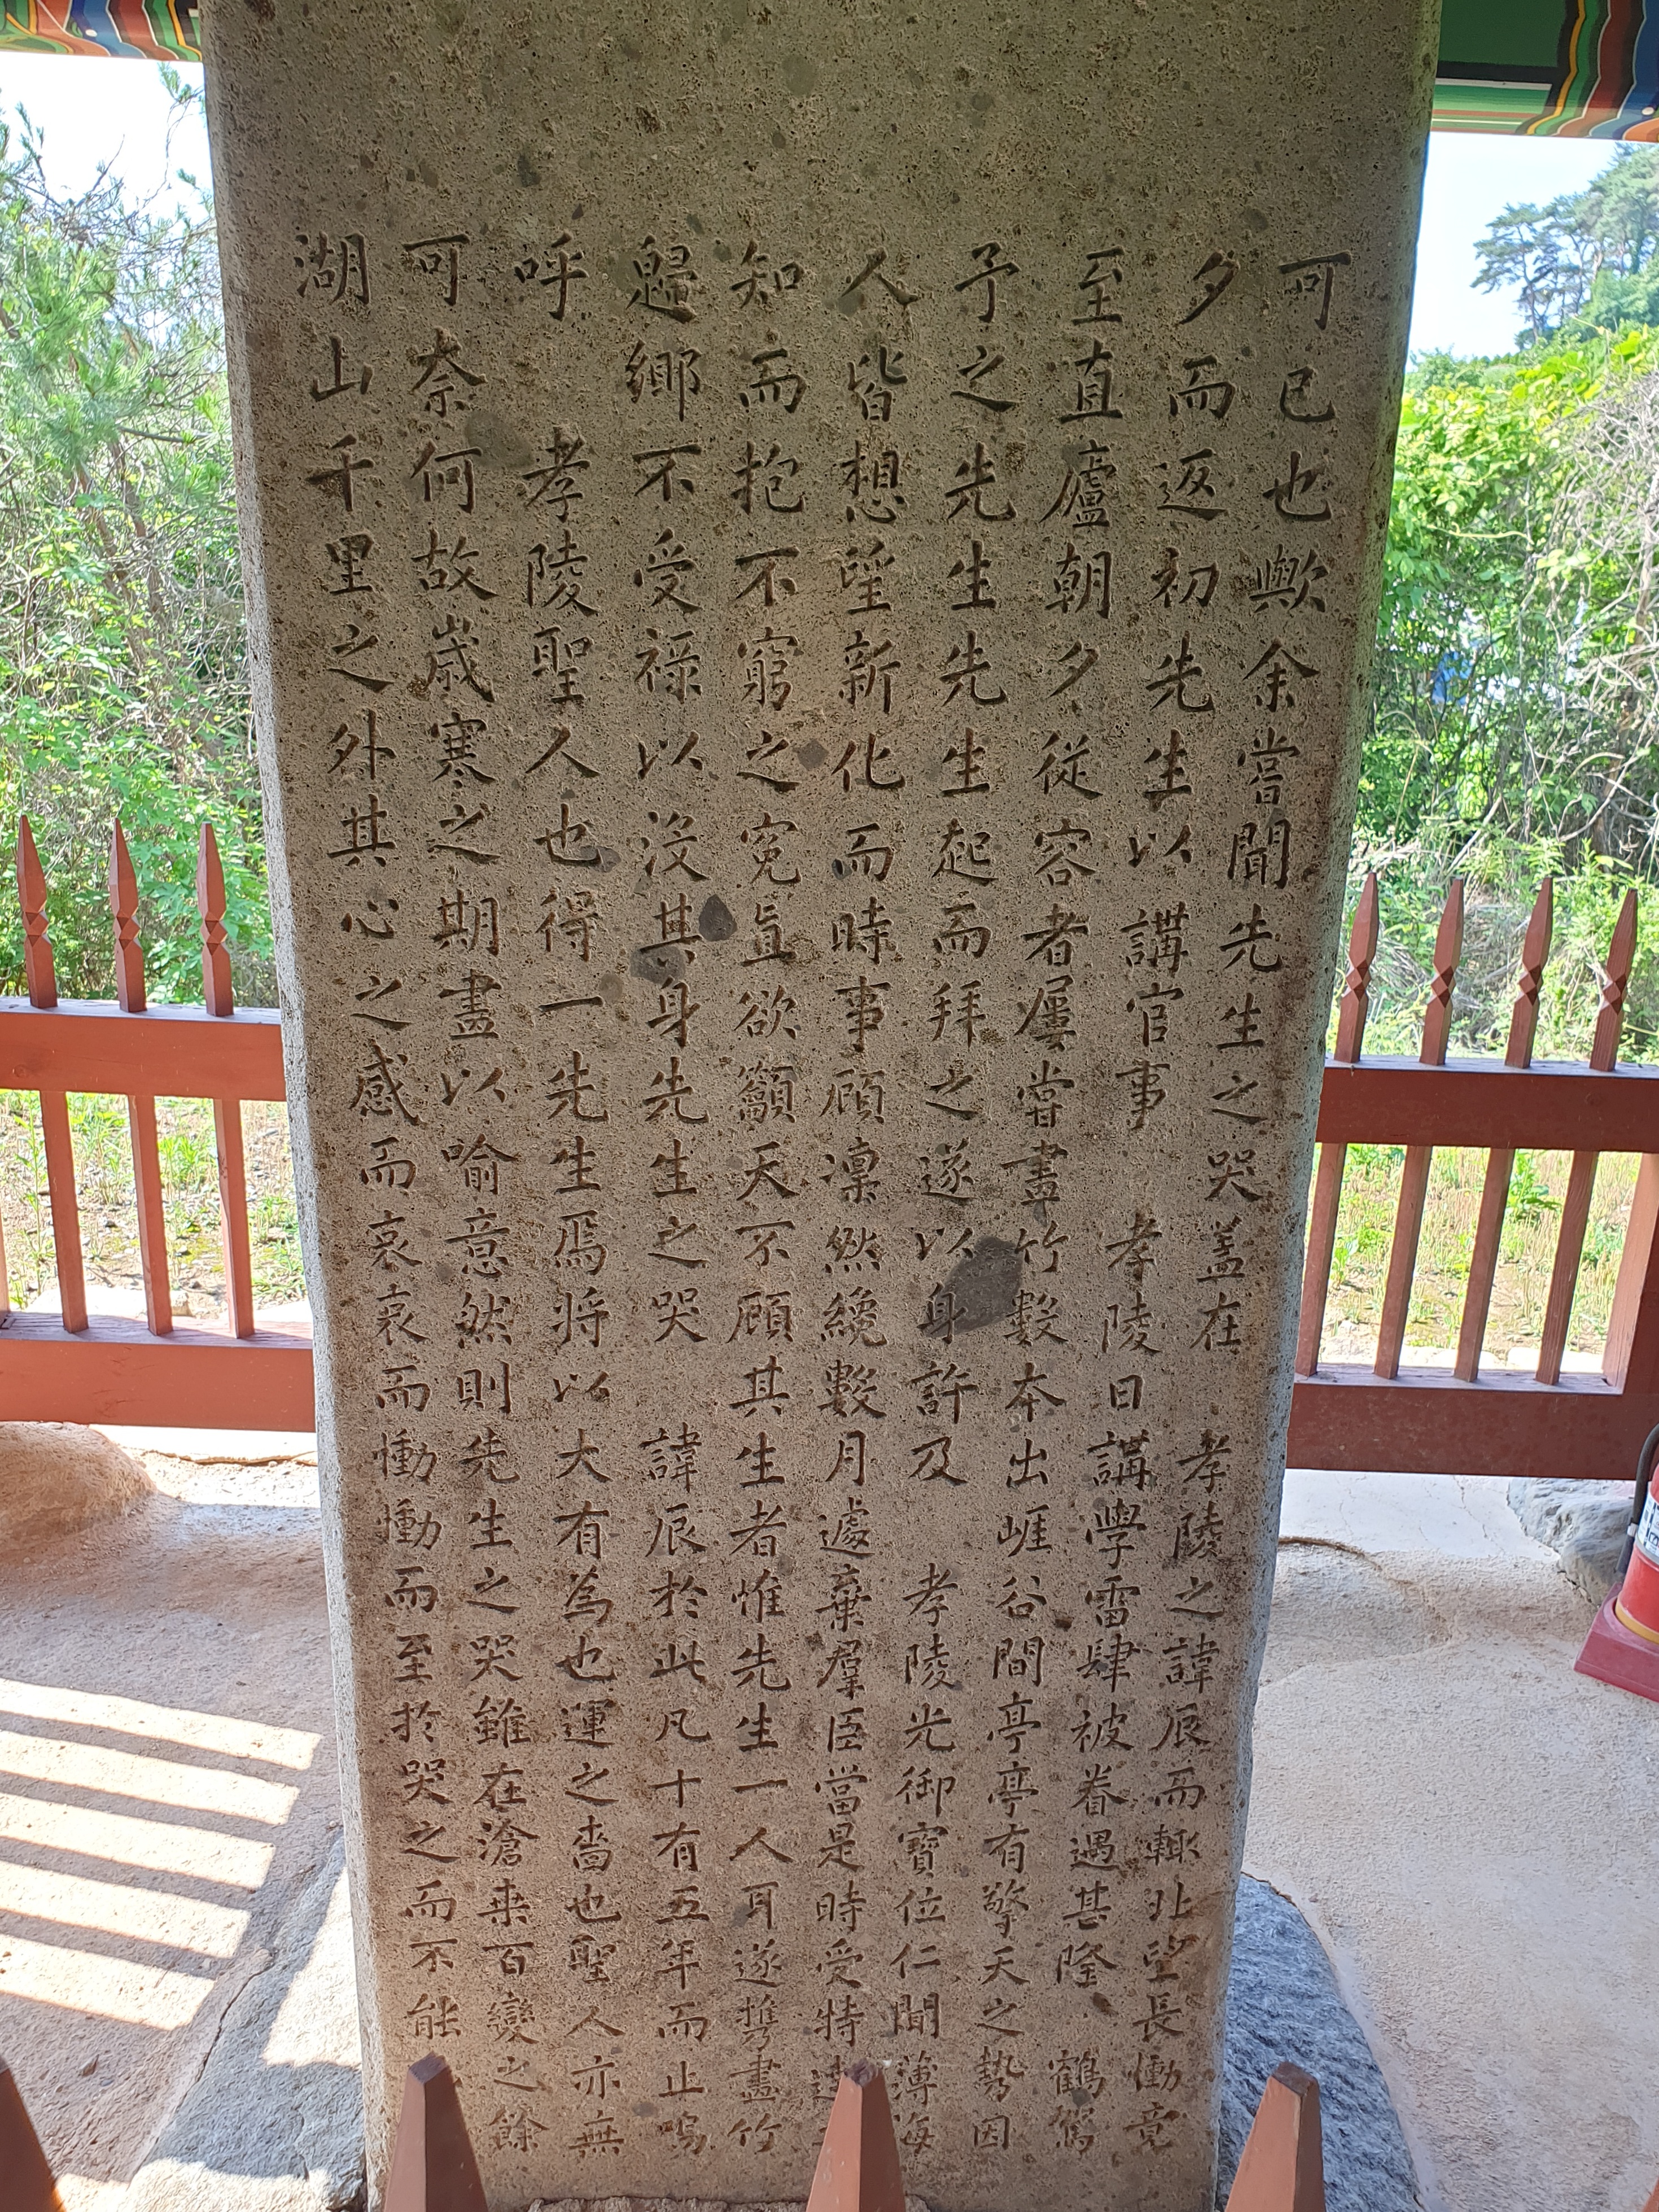 可已也歟余嘗聞先生之哭蓋在 孝陵之諱辰而輒北望長慟竟
夕而返初先生以講官事 孝陵日講學雷肆被眷遇甚隆 鶴駕
至直廬朝夕從容者屢嘗畫竹數本出崖谷間亭亭有擎天之勢因
予之先生先生起而拜之遂以身許及 孝陵光御寶位仁聞薄海
人皆想望新化而時事顧凜然纔數月遽棄羣臣當是時受特達
知而抱不窮之寃直欲籲天不顧其生者惟先生一人耳遂携畫竹
歸鄉不受祿以沒其身先生之哭 諱辰於此凡十有五年而止嗚
呼 孝陵聖人也得一先生焉將以大有為也運之嗇也聖人亦無
可奈何故歲寒之期畫以喻意然則先生之哭雖在滄桑百變之餘
湖山千里之外其心之感而哀哀而慟慟而至於哭之而不能